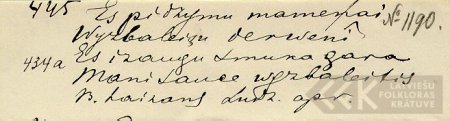 445 Es pidzymu mameņai № 1190.
Wyrbaleiņu derwenī
434a Es izaugu smuka gara
Mani sauce wyrbaleitis
B. Laizans Ludz. apr.
LATVIEŠU
FOLKLORAS
KRĀTUVE